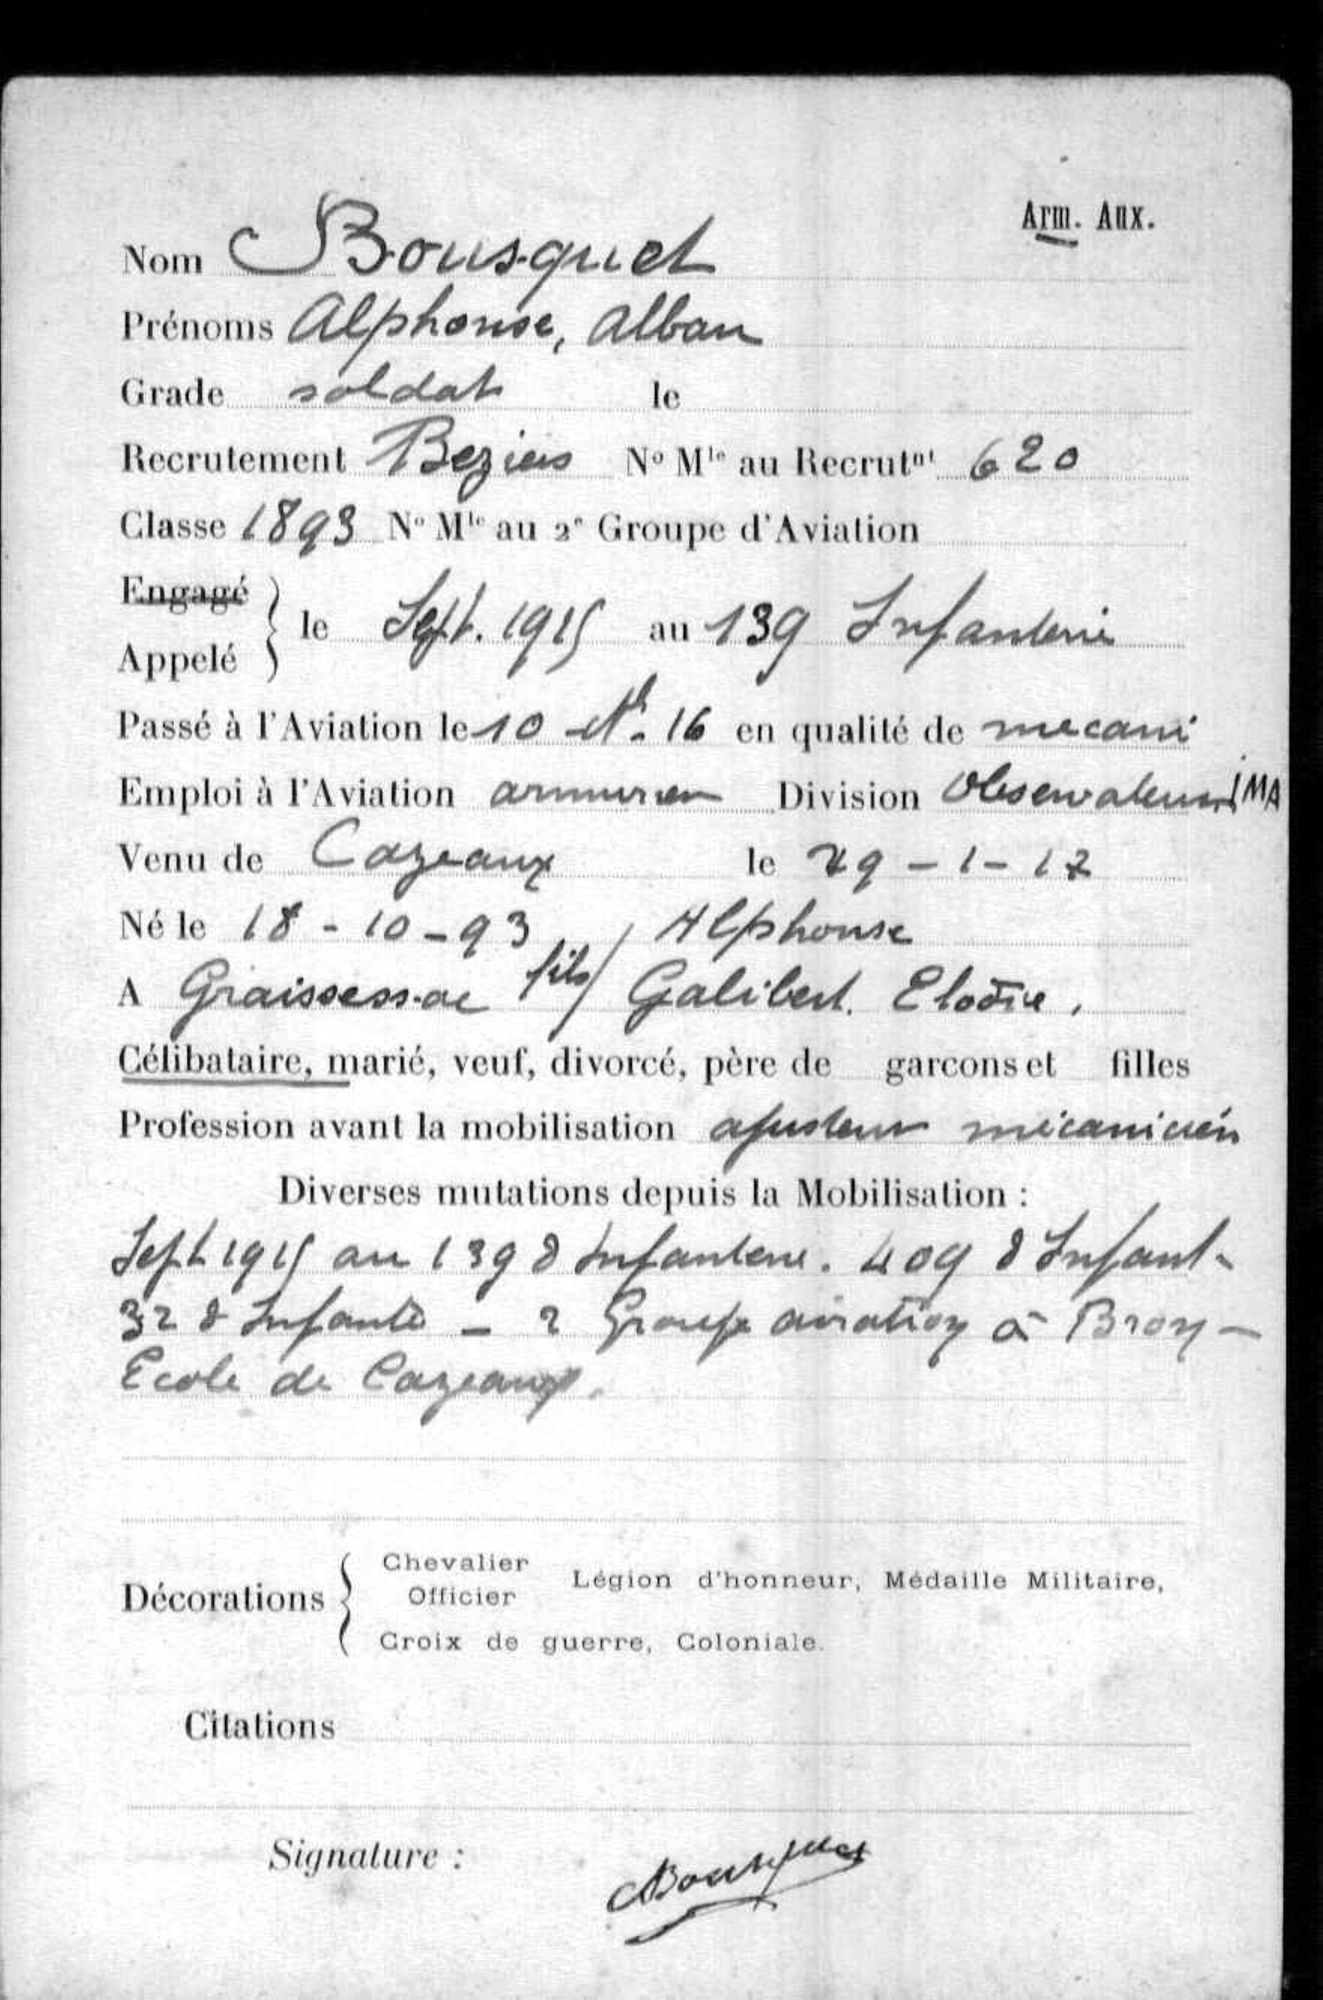 Arm. Aux.
Nom Bousquet
Prénoms Alphonse, Alban
Grade soldat le
Recrutement Beziers N° Mle au Recrutnt 620
Classe 1893 N° Mle au 2e Groupe d'Aviation
Engagé
Appelé } le Sept. 1915 au 139 Infanterie
Passé à l'Aviation le 10 16 en qualité de mecani
Emploi à l'Aviation armurier Division Observateurs IMA
Venu de Cazeaux le 29-1-17
Né le 18-10-93 Alphonse
A Graissessac fils / Galibert. Elodie,
Célibataire, marié, veuf, divorcé, père de garcons et filles
Profession avant la mobilisation ajusteur mécanicien
Diverses mutations depuis la Mobilisation :
Sept 1915 au 139 d Infanterie. 409 d Infant-
32 d Infante - 2 Groupe aviation à Bron -
Ecole de Cazeaux.
Décorations { Chevalier
Officier Légion d'honneur, Médaille Militaire,
Croix de guerre, Coloniale.
Citations
Signature : Bousquet